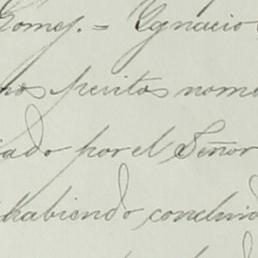 Gomez. = Ignacio
nos peritos nom
iado por el Señor
habiendo, conclui